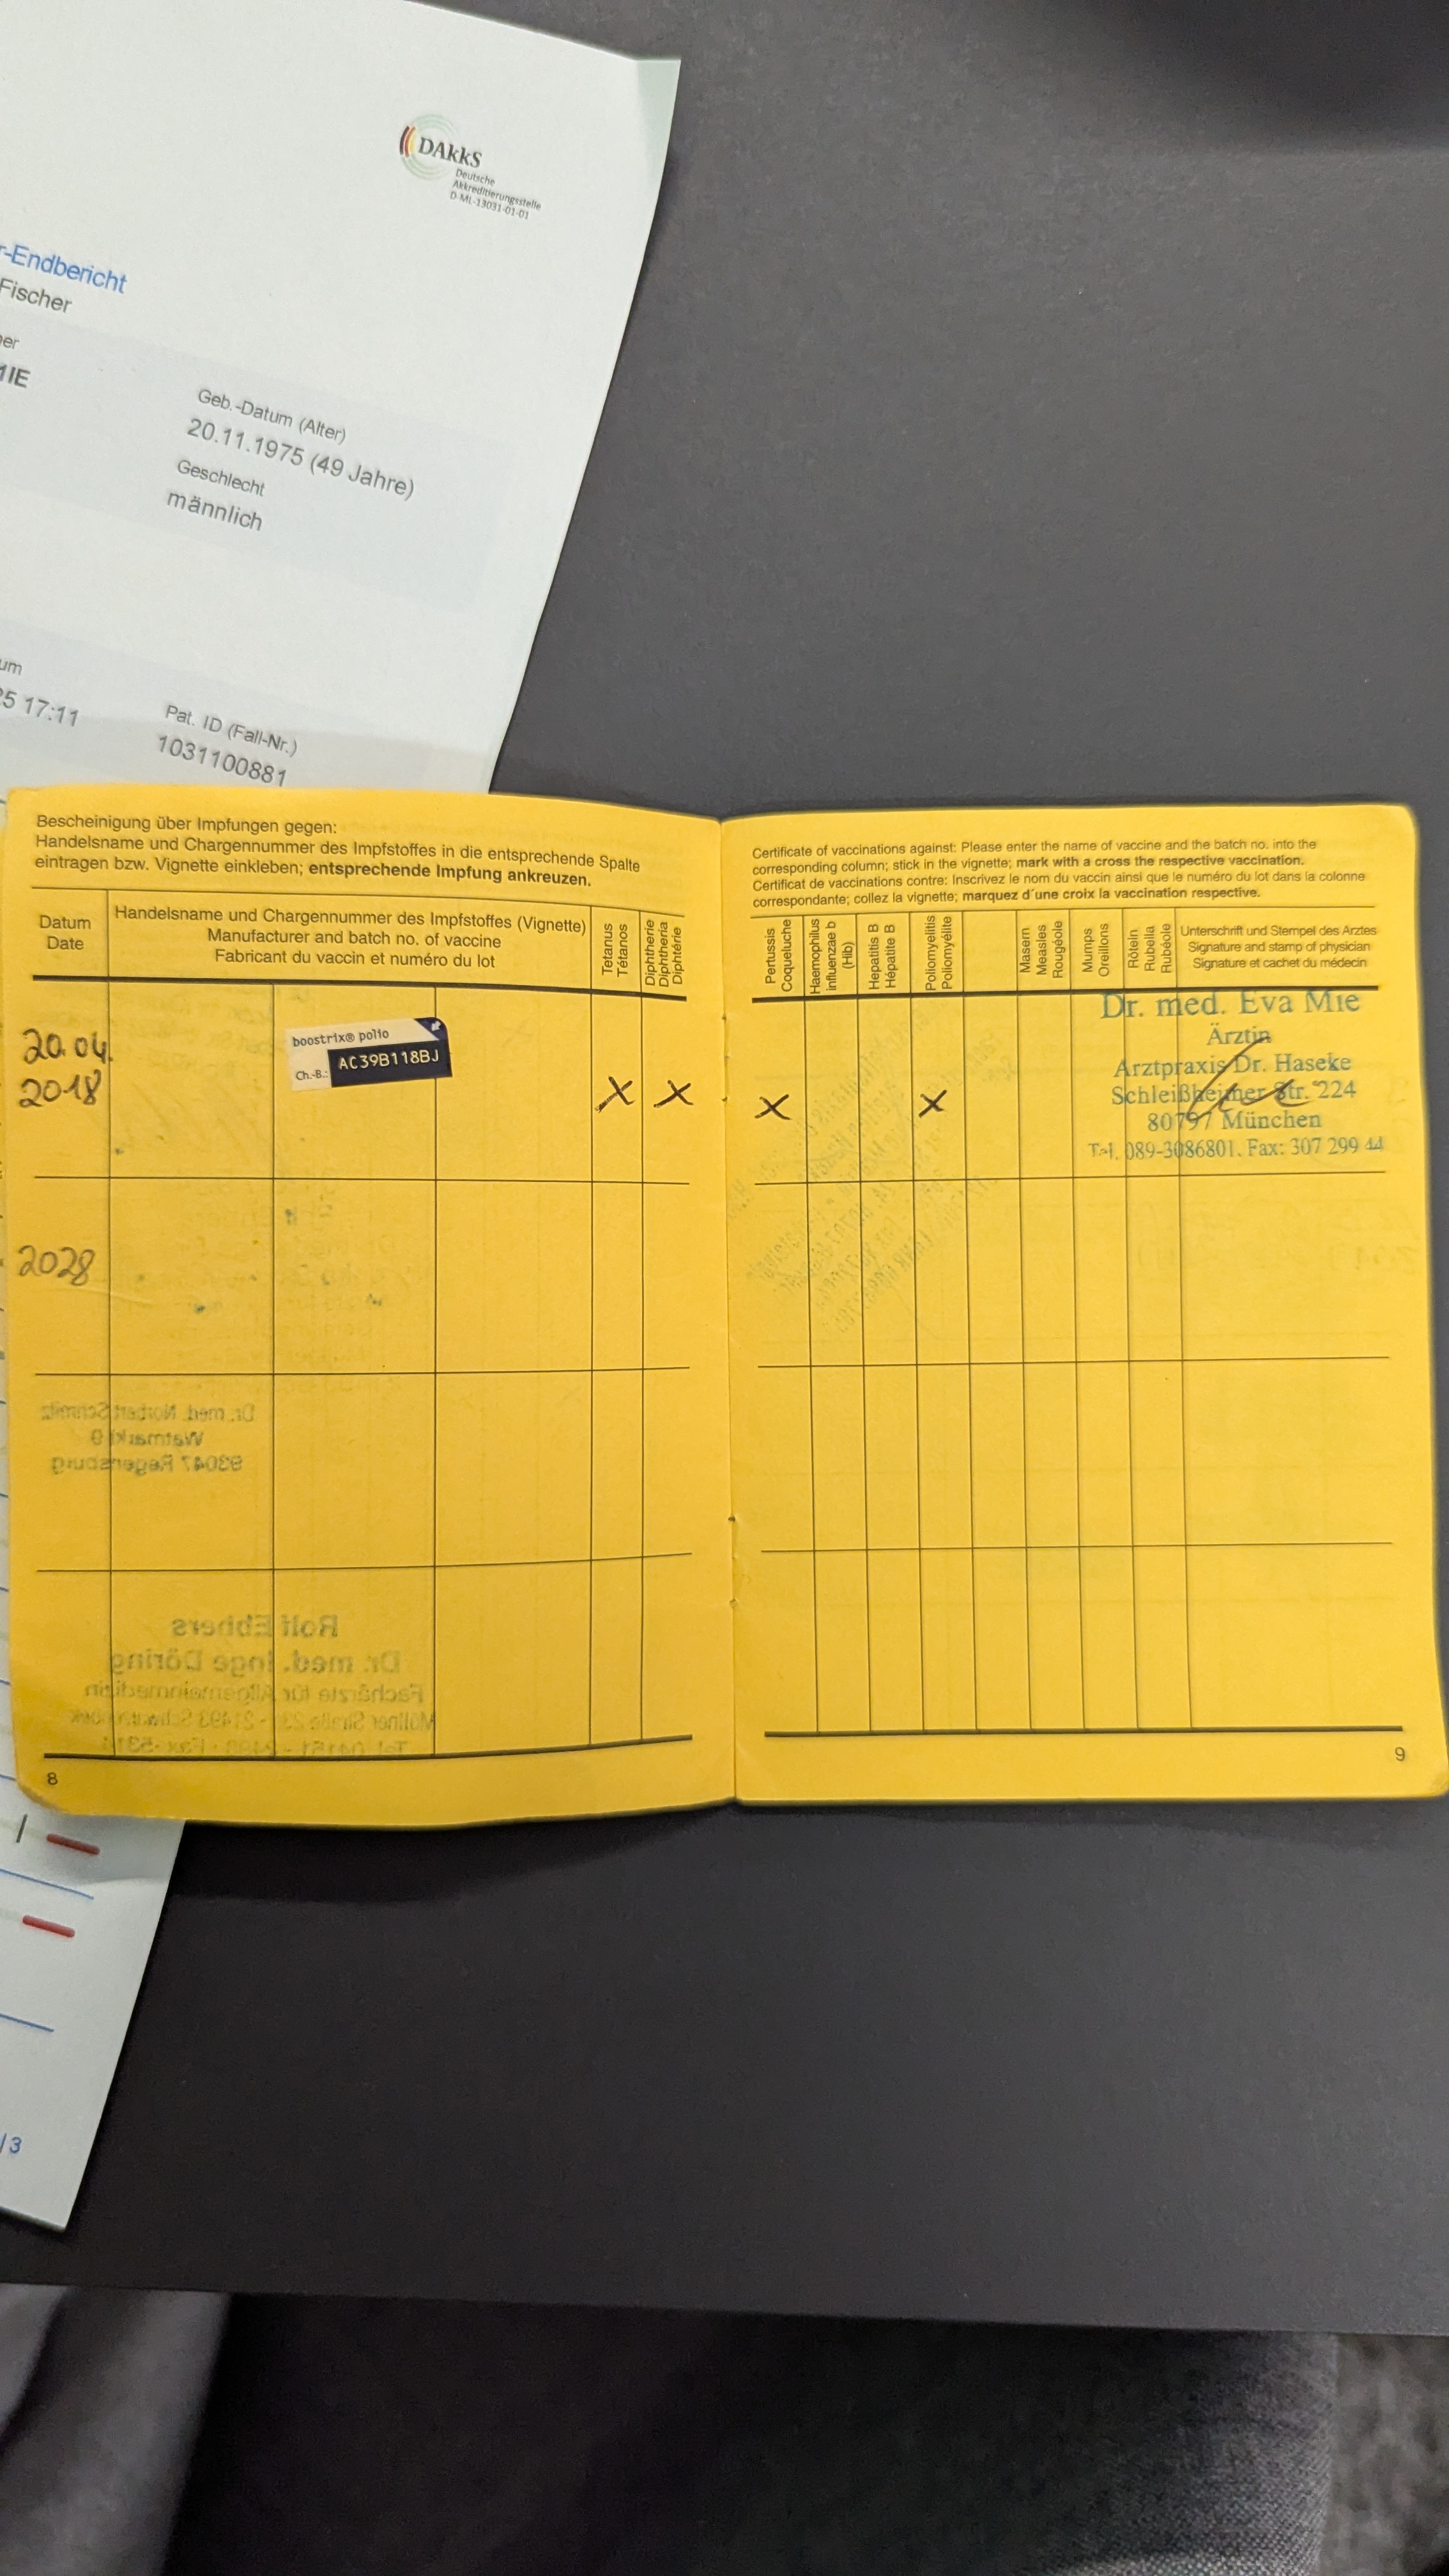 DAkkS
Deutsche
Akkreditierungsstelle
D-ML-13031-01-01
r-Endbericht
Fischer
er
1IE
Geb.-Datum (Alter)
20.11.1975 (49 Jahre)
Geschlecht
männlich
um
25 17:11
Pat. ID (Fall-Nr.)
1031100881
Bescheinigung über Impfungen gegen:
Handelsname und Chargennummer des Impfstoffes in die entsprechende Spalte
eintragen bzw. Vignette einkleben; entsprechende Impfung ankreuzen.
Datum
Date
Handelsname und Chargennummer des Impfstoffes (Vignette)
Manufacturer and batch no. of vaccine
Fabricant du vaccin et numéro du lot
Tetanus
Tétanos
Diphtherie
Diphtheria
Diphtérie
20.04.
2018
boostrix® polio
Ch.-B.: AC39B118BJ
X X
2028
Dr. med. Norbert Schmitz
Watmarkt 9
93047 Regensburg
Rolf Ebbers
Dr. med. Inge Döring
Fachärzte für Allgemeinmedizin
8
Certificate of vaccinations against: Please enter the name of vaccine and the batch no. into the
corresponding column; stick in the vignette; mark with a cross the respective vaccination.
Certificat de vaccinations contre: Inscrivez le nom du vaccin ainsi que le numéro du lot dans la colonne
correspondante; collez la vignette; marquez d'une croix la vaccination respective.
Pertussis
Coqueluche
Haemophilus
influenzae b
(Hib)
Hepatitis B
Hépatite B
Poliomyelitis
Poliomyélite
Masern
Measles
Rougéole
Mumps
Oreillons
Röteln
Rubella
Rubéole
Unterschrift und Stempel des Arztes
Signature and stamp of physician
Signature et cachet du médecin
X X
Dr. med. Eva Mie
Ärztin
Arztpraxis Dr. Haseke
Schleißheimer Str. 224
80797 München
Tel. 089-3086801. Fax: 307 299 44
9
/3